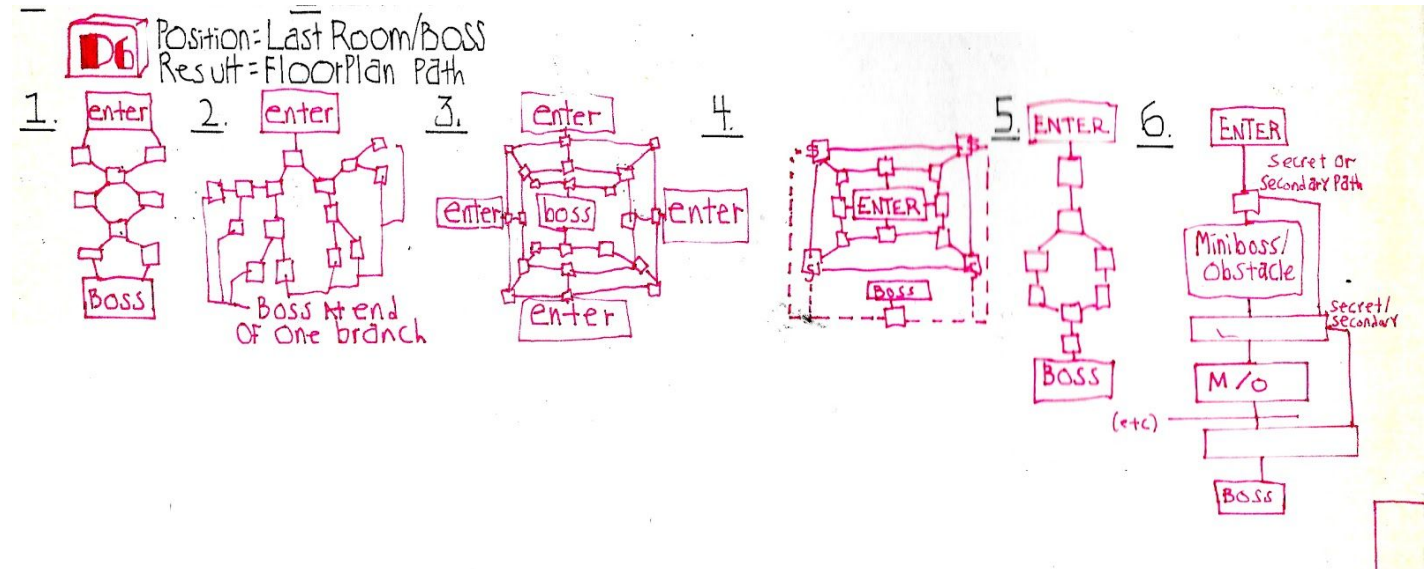 D6 Position=Last Room/Boss
Result=FloorPlan Path
1.
enter
Boss
2.
enter
Boss At end
Of One branch
3.
enter
enter
boss
enter
enter
4.
$
$
ENTER
S
S
Boss
5.
ENTER
BOSS
6.
ENTER
Secret Or
Secondary Path
Miniboss/
Obstacle
Secret/
Secondary
M/O
(etc)
BOSS